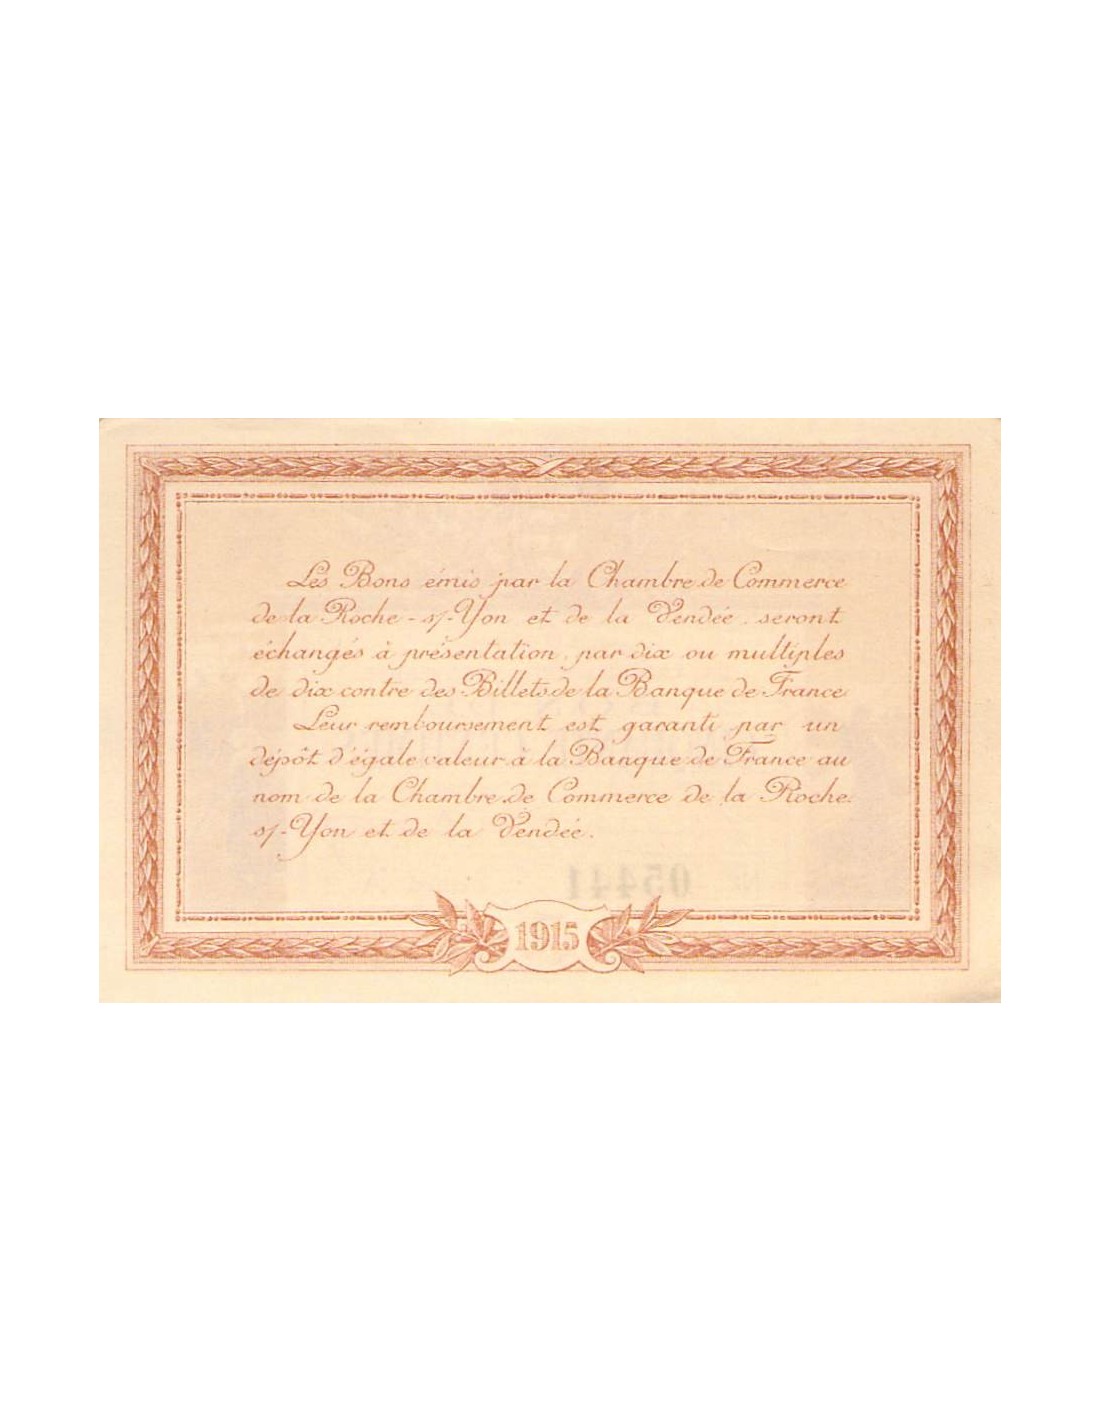 Les Bons émis par la Chambre de Commerce
de la Roche-s/-Yon et de la Vendée, seront
échangés à présentation, par dix ou multiples
de dix contre des Billets de la Banque de France
Leur remboursement est garanti par un
dépôt d'égale valeur à la Banque de France au
nom de la Chambre de Commerce de la Roche-
s/-Yon et de la Vendée.
05441
1915